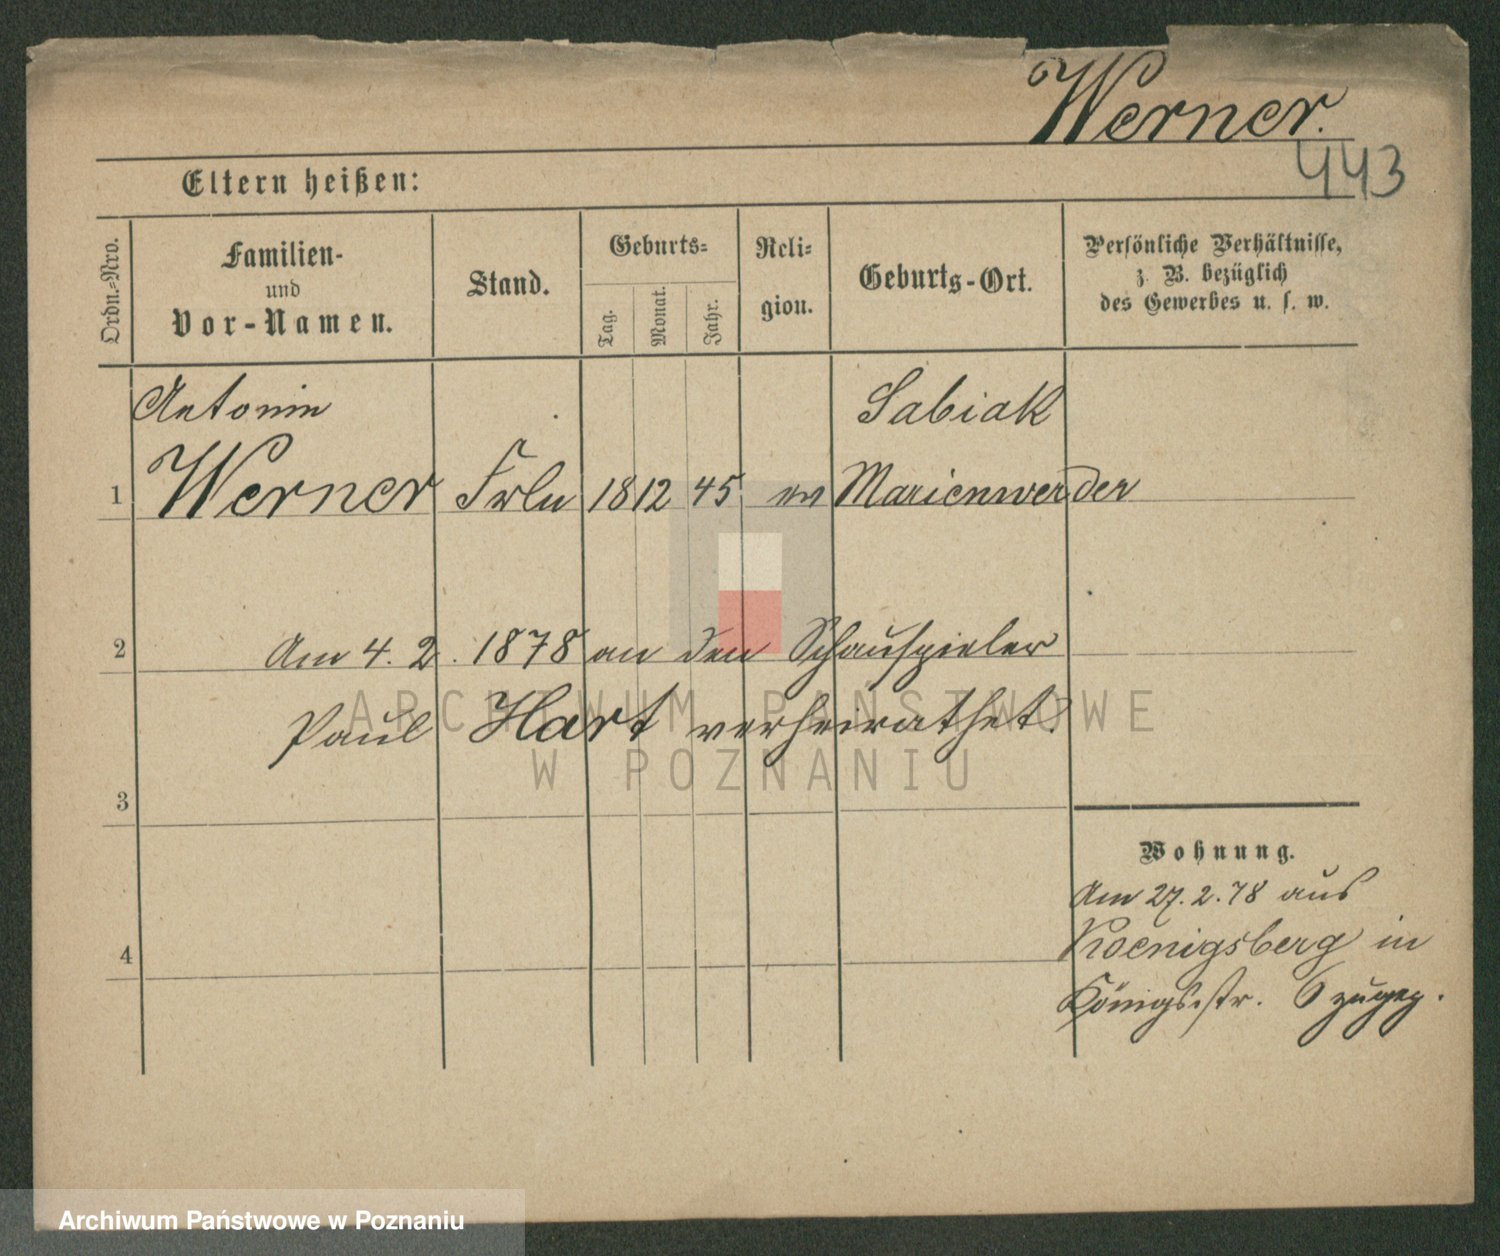 Werner.
443
Eltern heißen:
Ordn.=Nro.
Familien-
und
Vor-Namen.
Stand.
Geburts=
Tag.
Monat.
Jahr.
Reli=
gion.
Geburts-Ort.
Persönliche Verhältnisse,
z. B. bezüglich
des Gewerbes u. s. w.
Antonin
Sabiak
1 Werner Frln 18 12 45 ev Marienwerder
2 Am 4. 2. 1878 an den Schauspieler
Paul Hart verheirathet.
3
Wohnung.
Am 27. 2. 78 aus
4
Koenigsberg in
Königsstr. 6 zugez.
ARCHIWUM PAŃSTWOWE
W POZNANIU
Archiwum Państwowe w Poznaniu